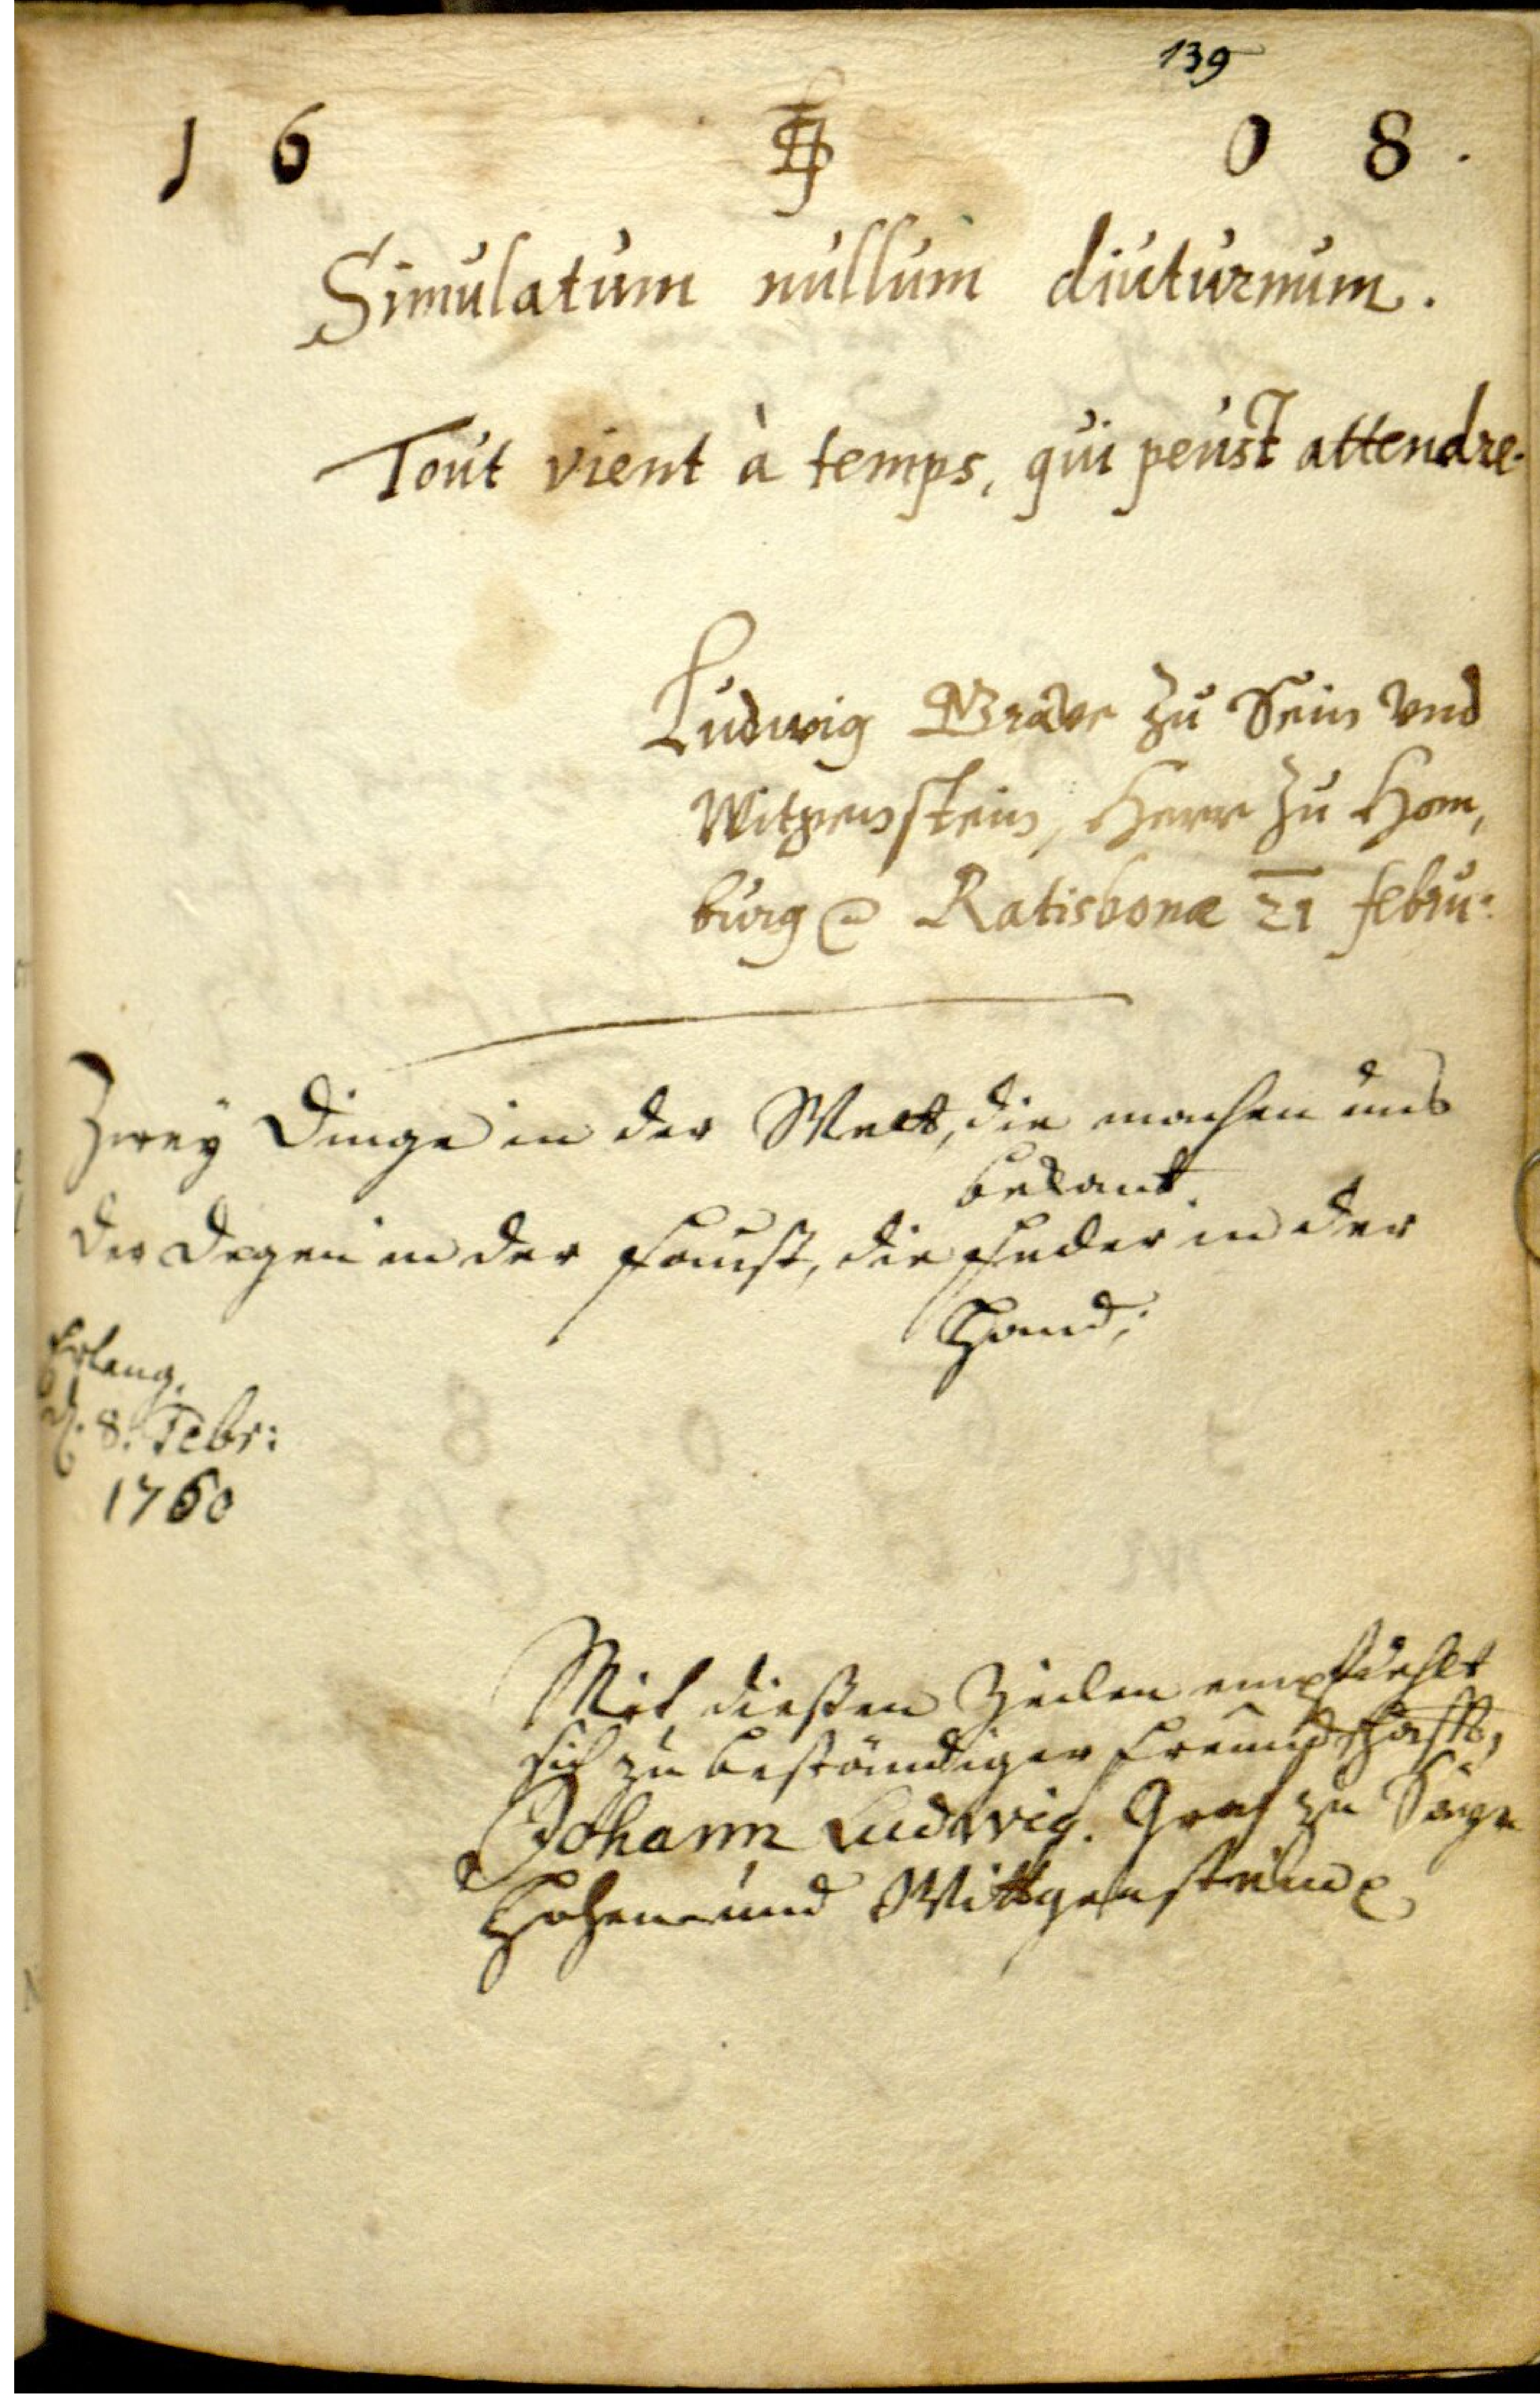 139
1 6 0 8.
Simulatum nullum diuturnum.
Tout vient à temps, qui peust attendre.
Ludwig Grave zu Sein vnd
Witgenstein, Herr zu Hom,
burg Ratisbonæ 21 febru:
Zwey Dinge in der Welt, die machen uns
bekant.
Der Degen in der Faust, die Feder in der
Hand;
Erlang,
d. 8. Febr:
1760
Mit dießen Zeilen empfiehlt
sich zu beständiger Freundschafft,
Johann Ludwig. Graf zu Sayn
Hohen und Wittgenstein